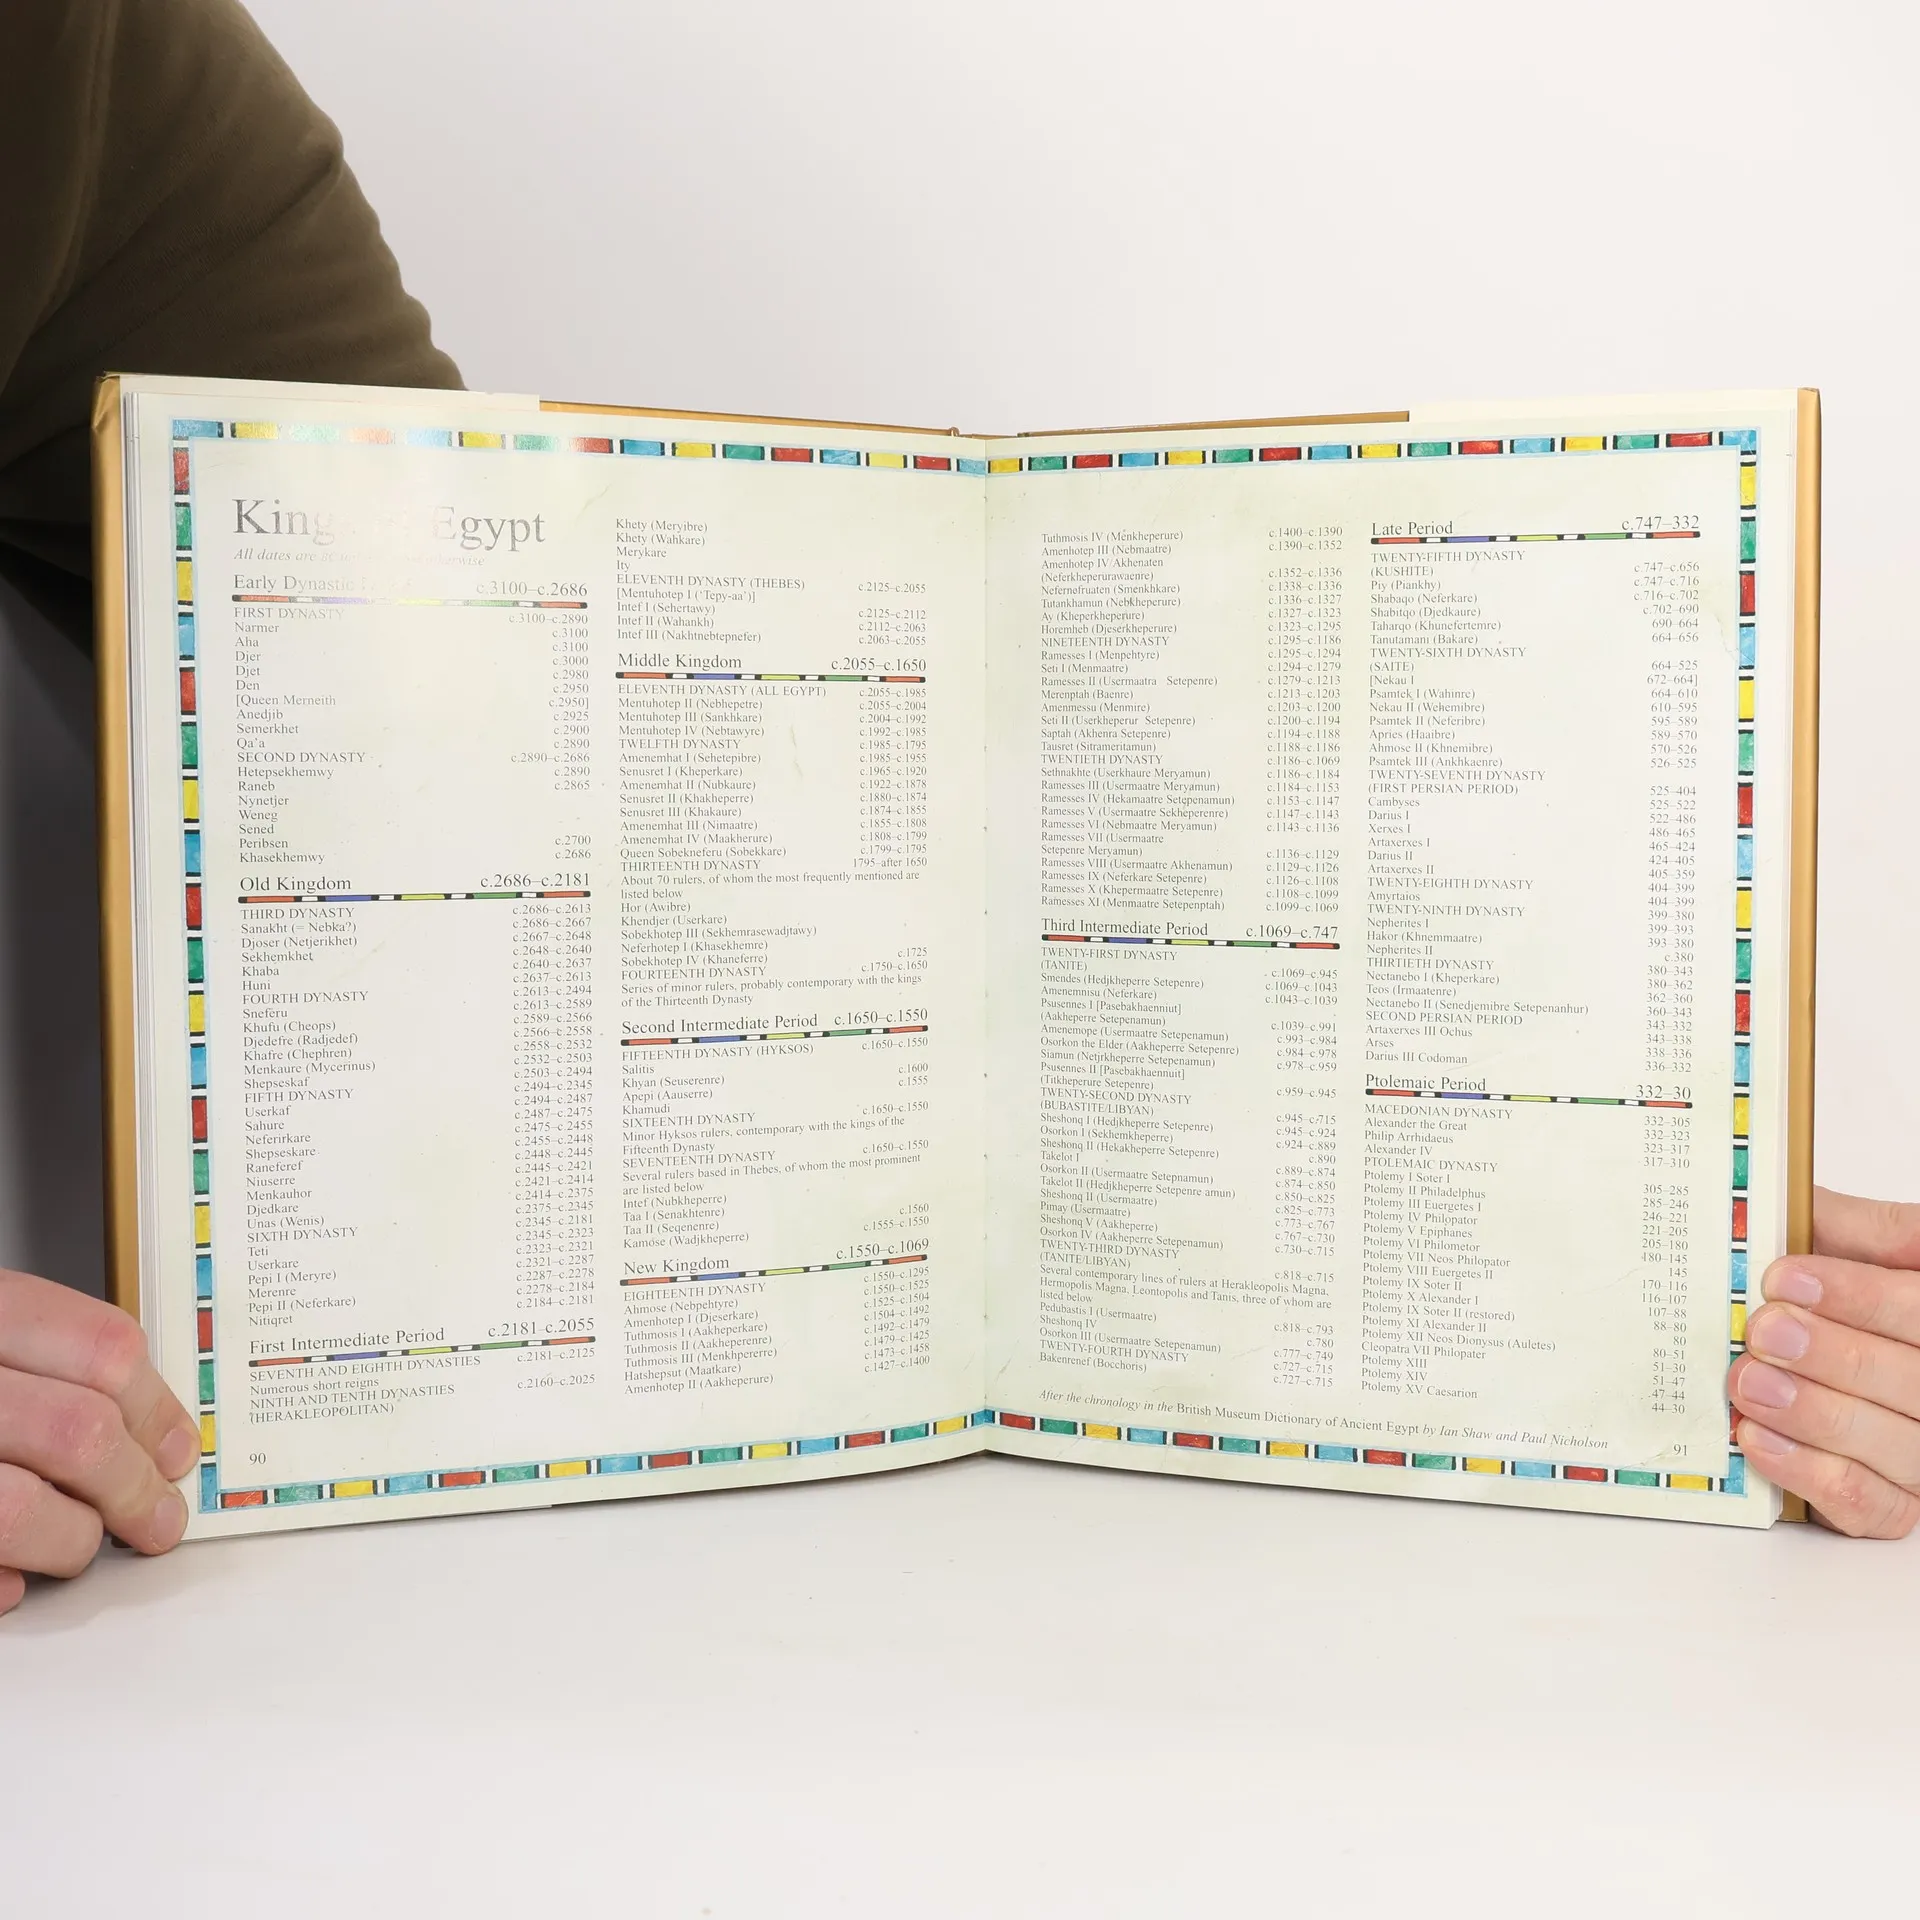 King Egypt
All dates are BC otherwise
Early Dynastic c.3100–c.2686
FIRST DYNASTY c.3100–c.2890
Narmer c.3100
Aha c.3100
Djer c.3000
Djet c.2980
Den c.2950
[Queen Merneith c.2950]
Anedjib c.2925
Semerkhet c.2900
Qa'a c.2890
SECOND DYNASTY c.2890–c.2686
Hetepsekhemwy c.2890
Raneb c.2865
Nynetjer
Weneg
Sened
Peribsen c.2700
Khasekhemwy c.2686
Old Kingdom c.2686–c.2181
THIRD DYNASTY c.2686–c.2613
Sanakht (= Nebka?) c.2686–c.2667
Djoser (Netjerikhet) c.2667–c.2648
Sekhemkhet c.2648–c.2640
Khaba c.2640–c.2637
Huni c.2637–c.2613
FOURTH DYNASTY c.2613–c.2494
Sneferu c.2613–c.2589
Khufu (Cheops) c.2589–c.2566
Djedefre (Radjedef) c.2566–c.2558
Khafre (Chephren) c.2558–c.2532
Menkaure (Mycerinus) c.2532–c.2503
Shepseskaf c.2503–c.2494
FIFTH DYNASTY c.2494–c.2345
Userkaf c.2494–c.2487
Sahure c.2487–c.2475
Neferirkare c.2475–c.2455
Shepseskare c.2455–c.2448
Raneferef c.2448–c.2445
Niuserre c.2445–c.2421
Menkauhor c.2421–c.2414
Djedkare c.2414–c.2375
Unas (Wenis) c.2375–c.2345
SIXTH DYNASTY c.2345–c.2181
Teti c.2345–c.2323
Userkare c.2323–c.2321
Pepi I (Meryre) c.2321–c.2287
Merenre c.2287–c.2278
Pepi II (Neferkare) c.2278–c.2184
Nitiqret c.2184–c.2181
First Intermediate Period c.2181–c.2055
SEVENTH AND EIGHTH DYNASTIES c.2181–c.2125
Numerous short reigns
NINTH AND TENTH DYNASTIES c.2160–c.2025
(HERAKLEOPOLITAN)
90
Khety (Meryibre)
Khety (Wahkare)
Merykare
Ity
ELEVENTH DYNASTY (THEBES) c.2125–c.2055
[Mentuhotep I ('Tepy-aa')]
Intef I (Sehertawy) c.2125–c.2112
Intef II (Wahankh) c.2112–c.2063
Intef III (Nakhtnebtepnefer) c.2063–c.2055
Middle Kingdom c.2055–c.1650
ELEVENTH DYNASTY (ALL EGYPT) c.2055–c.1985
Mentuhotep II (Nebhepetre) c.2055–c.2004
Mentuhotep III (Sankhkare) c.2004–c.1992
Mentuhotep IV (Nebtawyre) c.1992–c.1985
TWELFTH DYNASTY c.1985–c.1795
Amenemhat I (Sehetepibre) c.1985–c.1955
Senusret I (Kheperkare) c.1965–c.1920
Amenemhat II (Nubkaure) c.1922–c.1878
Senusret II (Khakheperre) c.1880–c.1874
Senusret III (Khakaure) c.1874–c.1855
Amenemhat III (Nimaatre) c.1855–c.1808
Amenemhat IV (Maakherure) c.1808–c.1799
Queen Sobekneferu (Sobekkare) c.1799–c.1795
THIRTEENTH DYNASTY 1795–after 1650
About 70 rulers, of whom the most frequently mentioned are
listed below
Hor (Awibre)
Khendjer (Userkare)
Sobekhotep III (Sekhemrasewadjtawy)
Neferhotep I (Khasekhemre)
Sobekhotep IV (Khaneferre) c.1725
FOURTEENTH DYNASTY c.1750–c.1650
Series of minor rulers, probably contemporary with the kings
of the Thirteenth Dynasty
Second Intermediate Period c.1650–c.1550
FIFTEENTH DYNASTY (HYKSOS) c.1650–c.1550
Salitis
Khyan (Seuserenre) c.1600
Apepi (Aauserre) c.1555
Khamudi
SIXTEENTH DYNASTY c.1650–c.1550
Minor Hyksos rulers, contemporary with the kings of the
Fifteenth Dynasty
SEVENTEENTH DYNASTY c.1650–c.1550
Several rulers based in Thebes, of whom the most prominent
are listed below
Intef (Nubkheperre)
Taa I (Senakhtenre)
Taa II (Seqenenre) c.1560
Kamose (Wadjkheperre) c.1555–c.1550
New Kingdom c.1550–c.1069
EIGHTEENTH DYNASTY c.1550–c.1295
Ahmose (Nebpehtyre) c.1550–c.1525
Amenhotep I (Djeserkare) c.1525–c.1504
Tuthmosis I (Aakheperkare) c.1504–c.1492
Tuthmosis II (Aakheperenre) c.1492–c.1479
Tuthmosis III (Menkhperrre) c.1479–c.1425
Hatshepsut (Maatkare) c.1473–c.1458
Amenhotep II (Aakheperure) c.1427–c.1400
Tuthmosis IV (Menkheperure) c.1400–c.1390
Amenhotep III (Nebmaatre) c.1390–c.1352
Amenhotep IV/Akhenaten
(Neferkheperurawaenre) c.1352–c.1336
Nefernefruaten (Smenkhkare) c.1338–c.1336
Tutankhamun (Nebkheperure) c.1336–c.1327
Ay (Kheperkheperure) c.1327–c.1323
Horemheb (Djeserkheperure) c.1323–c.1295
NINETEENTH DYNASTY c.1295–c.1186
Ramesses I (Menpehtyre) c.1295–c.1294
Seti I (Menmaatre) c.1294–c.1279
Ramesses II (Usermaatra Setepenre) c.1279–c.1213
Merenptah (Baenre) c.1213–c.1203
Amenmessu (Menmire) c.1203–c.1200
Seti II (Userkheperur Setepenre) c.1200–c.1194
Saptah (Akhenra Setepenre) c.1194–c.1188
Tausret (Sitrameritamun) c.1188–c.1186
TWENTIETH DYNASTY c.1186–c.1069
Sethnakhte (Userkhaure Meryamun) c.1186–c.1184
Ramesses III (Usermaatre Meryamun) c.1184–c.1153
Ramesses IV (Hekamaatre Setepenamun) c.1153–c.1147
Ramesses V (Usermaatre Sekheperenre) c.1147–c.1143
Ramesses VI (Nebmaatre Meryamun) c.1143–c.1136
Ramesses VII (Usermaatre
Setepenre Meryamun) c.1136–c.1129
Ramesses VIII (Usermaatre Akhenamun) c.1129–c.1126
Ramesses IX (Neferkare Setepenre) c.1126–c.1108
Ramesses X (Khepermaatre Setepenre) c.1108–c.1099
Ramesses XI (Menmaatre Setepenptah) c.1099–c.1069
Third Intermediate Period c.1069–c.747
TWENTY-FIRST DYNASTY
(TANITE) c.1069–c.945
Smendes (Hedjkheperre Setepenre) c.1069–c.1043
Amenemnisu (Neferkare) c.1043–c.1039
Psusennes I [Pasebakhaenniut]
(Aakheperre Setepenamun) c.1039–c.991
Amenemope (Usermaatre Setepenamun) c.993–c.984
Osorkon the Elder (Aakheperre Setepenre) c.984–c.978
Siamun (Netjrkheperre Setepenamun) c.978–c.959
Psusennes II [Pasebakhaennuit]
(Titkheperure Setepenre) c.959–c.945
TWENTY-SECOND DYNASTY
(BUBASTITE/LIBYAN) c.945–c.715
Sheshonq I (Hedjkheperre Setepenre) c.945–c.924
Osorkon I (Sekhemkheperre) c.924–c.889
Sheshonq II (Hekakheperre Setepenre) c.890
Takelot I c.889–c.874
Osorkon II (Usermaatre Setepnamun) c.874–c.850
Takelot II (Hedjkheperre Setepenre amun) c.850–c.825
Sheshonq II (Usermaatre) c.825–c.773
Pimay (Usermaatre) c.773–c.767
Sheshonq V (Aakheperre) c.767–c.730
Osorkon IV (Aakheperre Setepenamun) c.730–c.715
TWENTY-THIRD DYNASTY
(TANITE/LIBYAN) c.818–c.715
Several contemporary lines of rulers at Herakleopolis Magna,
Hermopolis Magna, Leontopolis and Tanis, three of whom are
listed below
Pedubastis I (Usermaatre) c.818–c.793
Sheshonq IV c.780
Osorkon III (Usermaatre Setepenamun) c.777–c.749
TWENTY-FOURTH DYNASTY c.727–c.715
Bakenrenef (Bocchoris) c.727–c.715
Late Period c.747–332
TWENTY-FIFTH DYNASTY
(KUSHITE) c.747–c.656
Piy (Piankhy) c.747–c.716
Shabaqo (Neferkare) c.716–c.702
Shabitqo (Djedkaure) c.702–690
Taharqo (Khunefertemre) 690–664
Tanutamani (Bakare) 664–656
TWENTY-SIXTH DYNASTY
(SAITE) 664–525
[Nekau I 672–664]
Psamtek I (Wahinre) 664–610
Nekau II (Wehemibre) 610–595
Psamtek II (Neferibre) 595–589
Apries (Haaibre) 589–570
Ahmose II (Khnemibre) 570–526
Psamtek III (Ankhkaenre) 526–525
TWENTY-SEVENTH DYNASTY
(FIRST PERSIAN PERIOD) 525–404
Cambyses 525–522
Darius I 522–486
Xerxes I 486–465
Artaxerxes I 465–424
Darius II 424–405
Artaxerxes II 405–359
TWENTY-EIGHTH DYNASTY 404–399
Amyrtaios 404–399
TWENTY-NINTH DYNASTY 399–380
Nepherites I 399–393
Hakor (Khnemmaatre) 393–380
Nepherites II c.380
THIRTIETH DYNASTY 380–343
Nectanebo I (Kheperkare) 380–362
Teos (Irmaatenre) 362–360
Nectanebo II (Senedjemibre Setepenanhur) 360–343
SECOND PERSIAN PERIOD 343–332
Artaxerxes III Ochus 343–338
Arses 338–336
Darius III Codoman 336–332
Ptolemaic Period 332–30
MACEDONIAN DYNASTY 332–305
Alexander the Great 332–323
Philip Arrhidaeus 323–317
Alexander IV 317–310
PTOLEMAIC DYNASTY
Ptolemy I Soter I 305–285
Ptolemy II Philadelphus 285–246
Ptolemy III Euergetes I 246–221
Ptolemy IV Philopator 221–205
Ptolemy V Epiphanes 205–180
Ptolemy VI Philometor 480–145
Ptolemy VII Neos Philopator 145
Ptolemy VIII Euergetes II 170–116
Ptolemy IX Soter II 116–107
Ptolemy X Alexander I 107–88
Ptolemy IX Soter II (restored) 88–80
Ptolemy XI Alexander II 80
Ptolemy XII Neos Dionysus (Auletes) 80–51
Cleopatra VII Philopater 51–30
Ptolemy XIII 51–47
Ptolemy XIV 47–44
Ptolemy XV Caesarion 44–30
After the chronology in the British Museum Dictionary of Ancient Egypt by Ian Shaw and Paul Nicholson
91